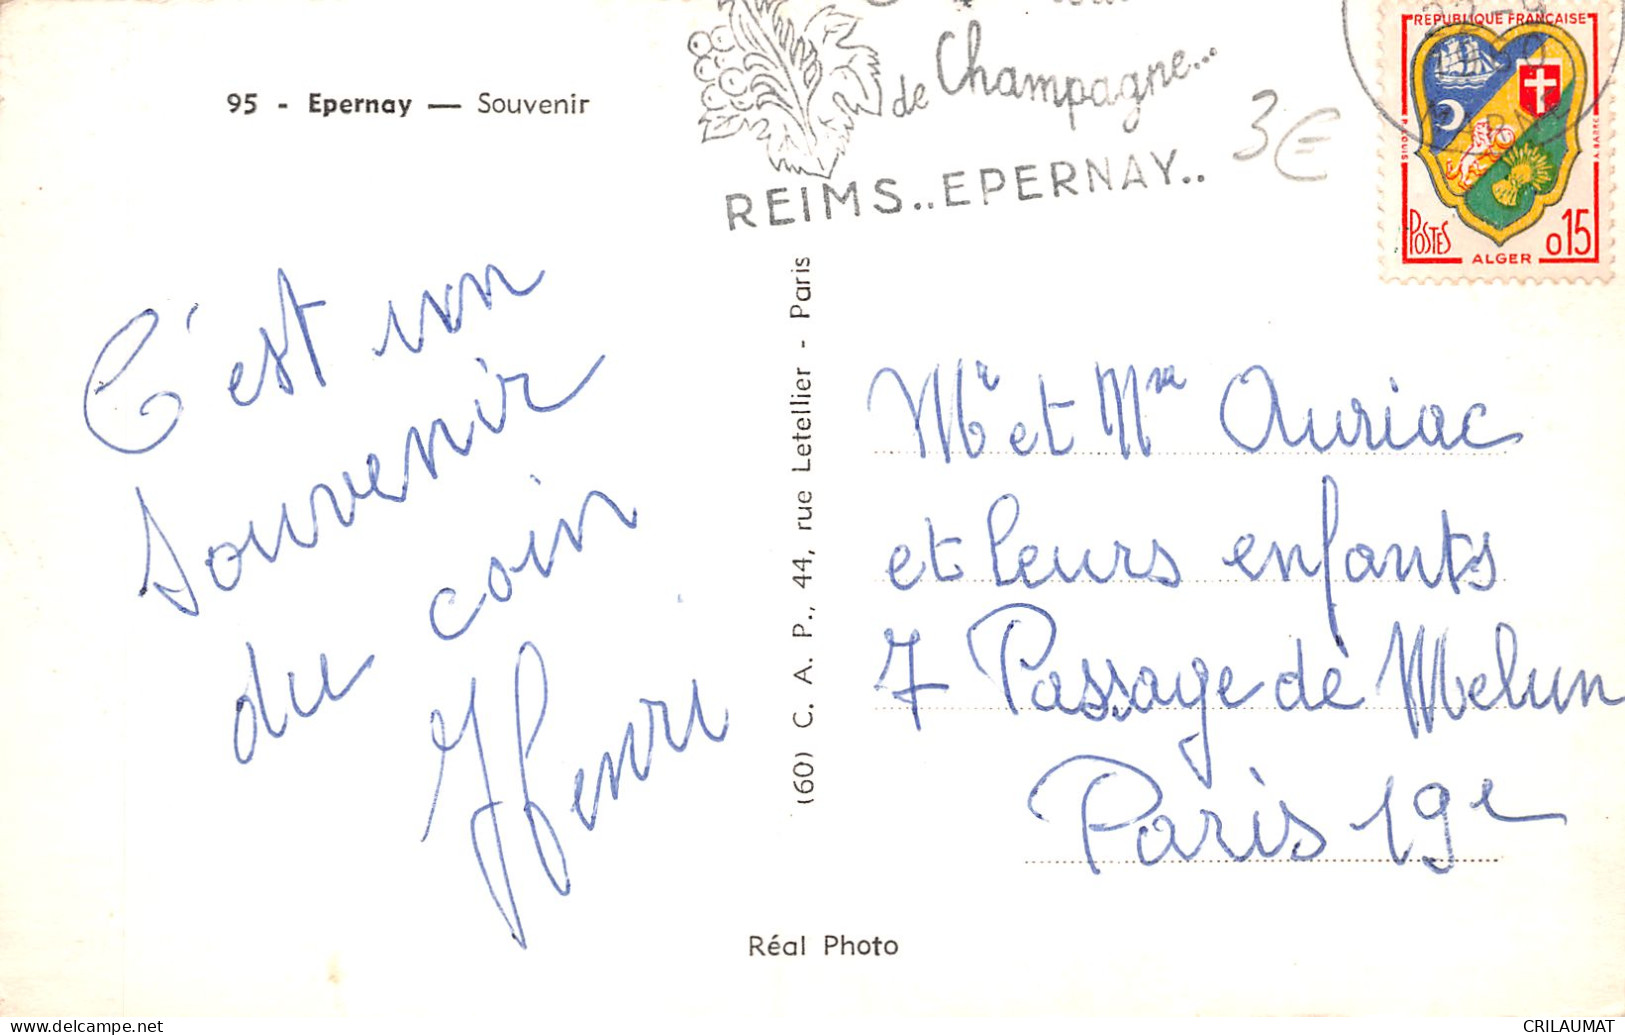 95 - Epernay — Souvenir
de Champagne...
REIMS..EPERNAY..
3€
REPUBLIQUE FRANÇAISE
POSTES
ALGER
0,15
C'est un
souvenir
du coin
Henri
(60) C. A. P., 44, rue Letellier - Paris
Mr et Mme Auriac
et leurs enfants
7 Passage de Melun
Paris 19e
Réal Photo
CRILAUMAT